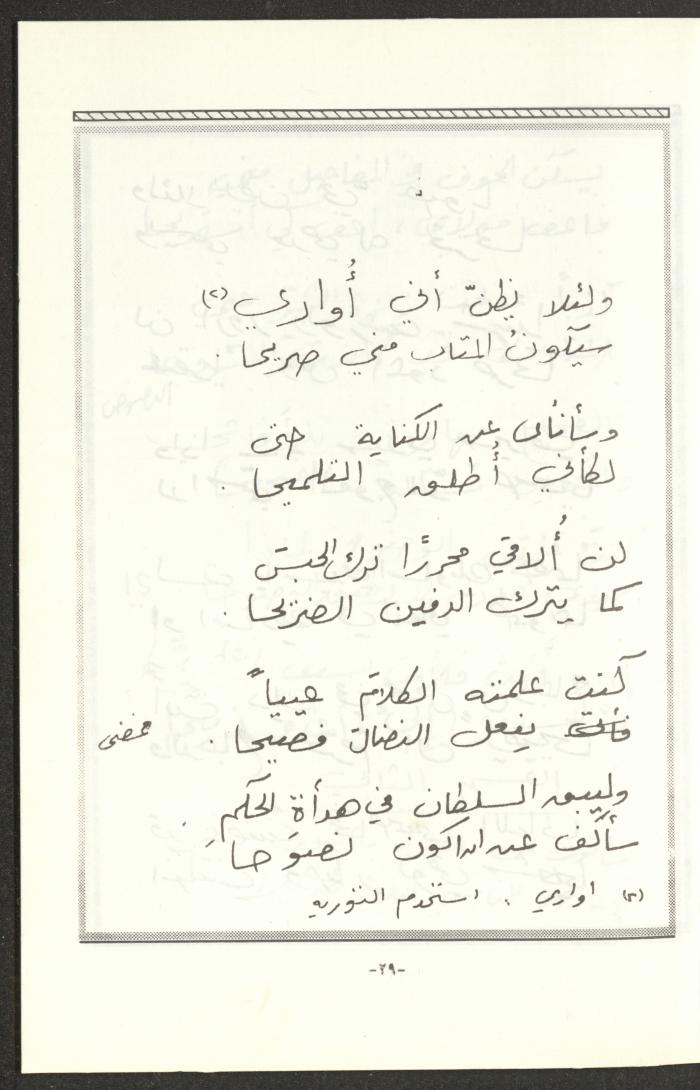 ولئلا يظنّ أني أُواري (٢)
سيكونُ المتاب مني صريحا .
وسأنأى عن الكناية حتى
لكأني أُطلق التلميحا .
لن أُلاقي محررًا ترك الحبسَ
كما يترك الدفين الضريحا .
كنت علمته الكلامَ عيياً
يفعل النضال فصيحا . فمضى
وليبق السلطان في هدأة الحكم .
سأكف عن ان اكون نصوحا
(٢) اواري . استخدم التوريه
-٢٩-